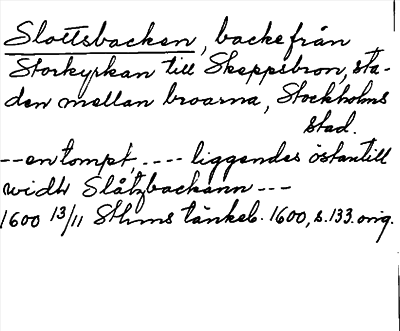 Slottsbacken, backe från
Storkyrkan till Skeppsbron, sta-
den mellan broarna, Stockholms
stad.
-- en tompt, ---- liggendes östantill
widh Slåtzbackenn ---
1600 13/11 Sthms tänkeb. 1600, s. 133. orig.